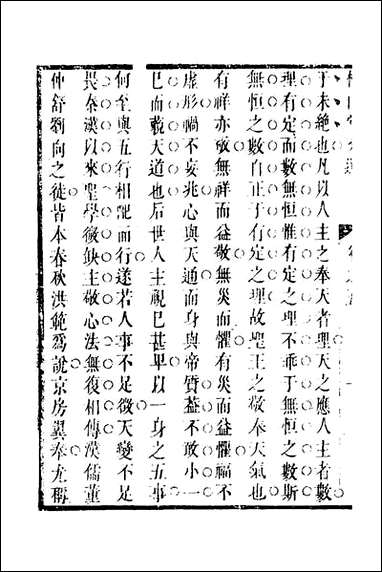 于未絶也凡以人主之奉天者理天之應人主者數
理有定而數無恒惟有定之理不乖于無恒之數斯
無恒之數自正于有定之理故聖王之敬奉天氣也
有祥亦敬無祥而益敬無災而懼有災而益懼福不
虚形禍不妄兆心與天通而身與帝質葢不敢小一
巳而藐天道也后世人主視巳甚卑以一身之五事
何至與五行相配而行遂若人事不足徵天變不足
畏秦漢以來聖學微缺主敬心法無復相傳漢儒董
仲舒劉向之徒皆本春秋洪範爲說京房翼奉尤稱